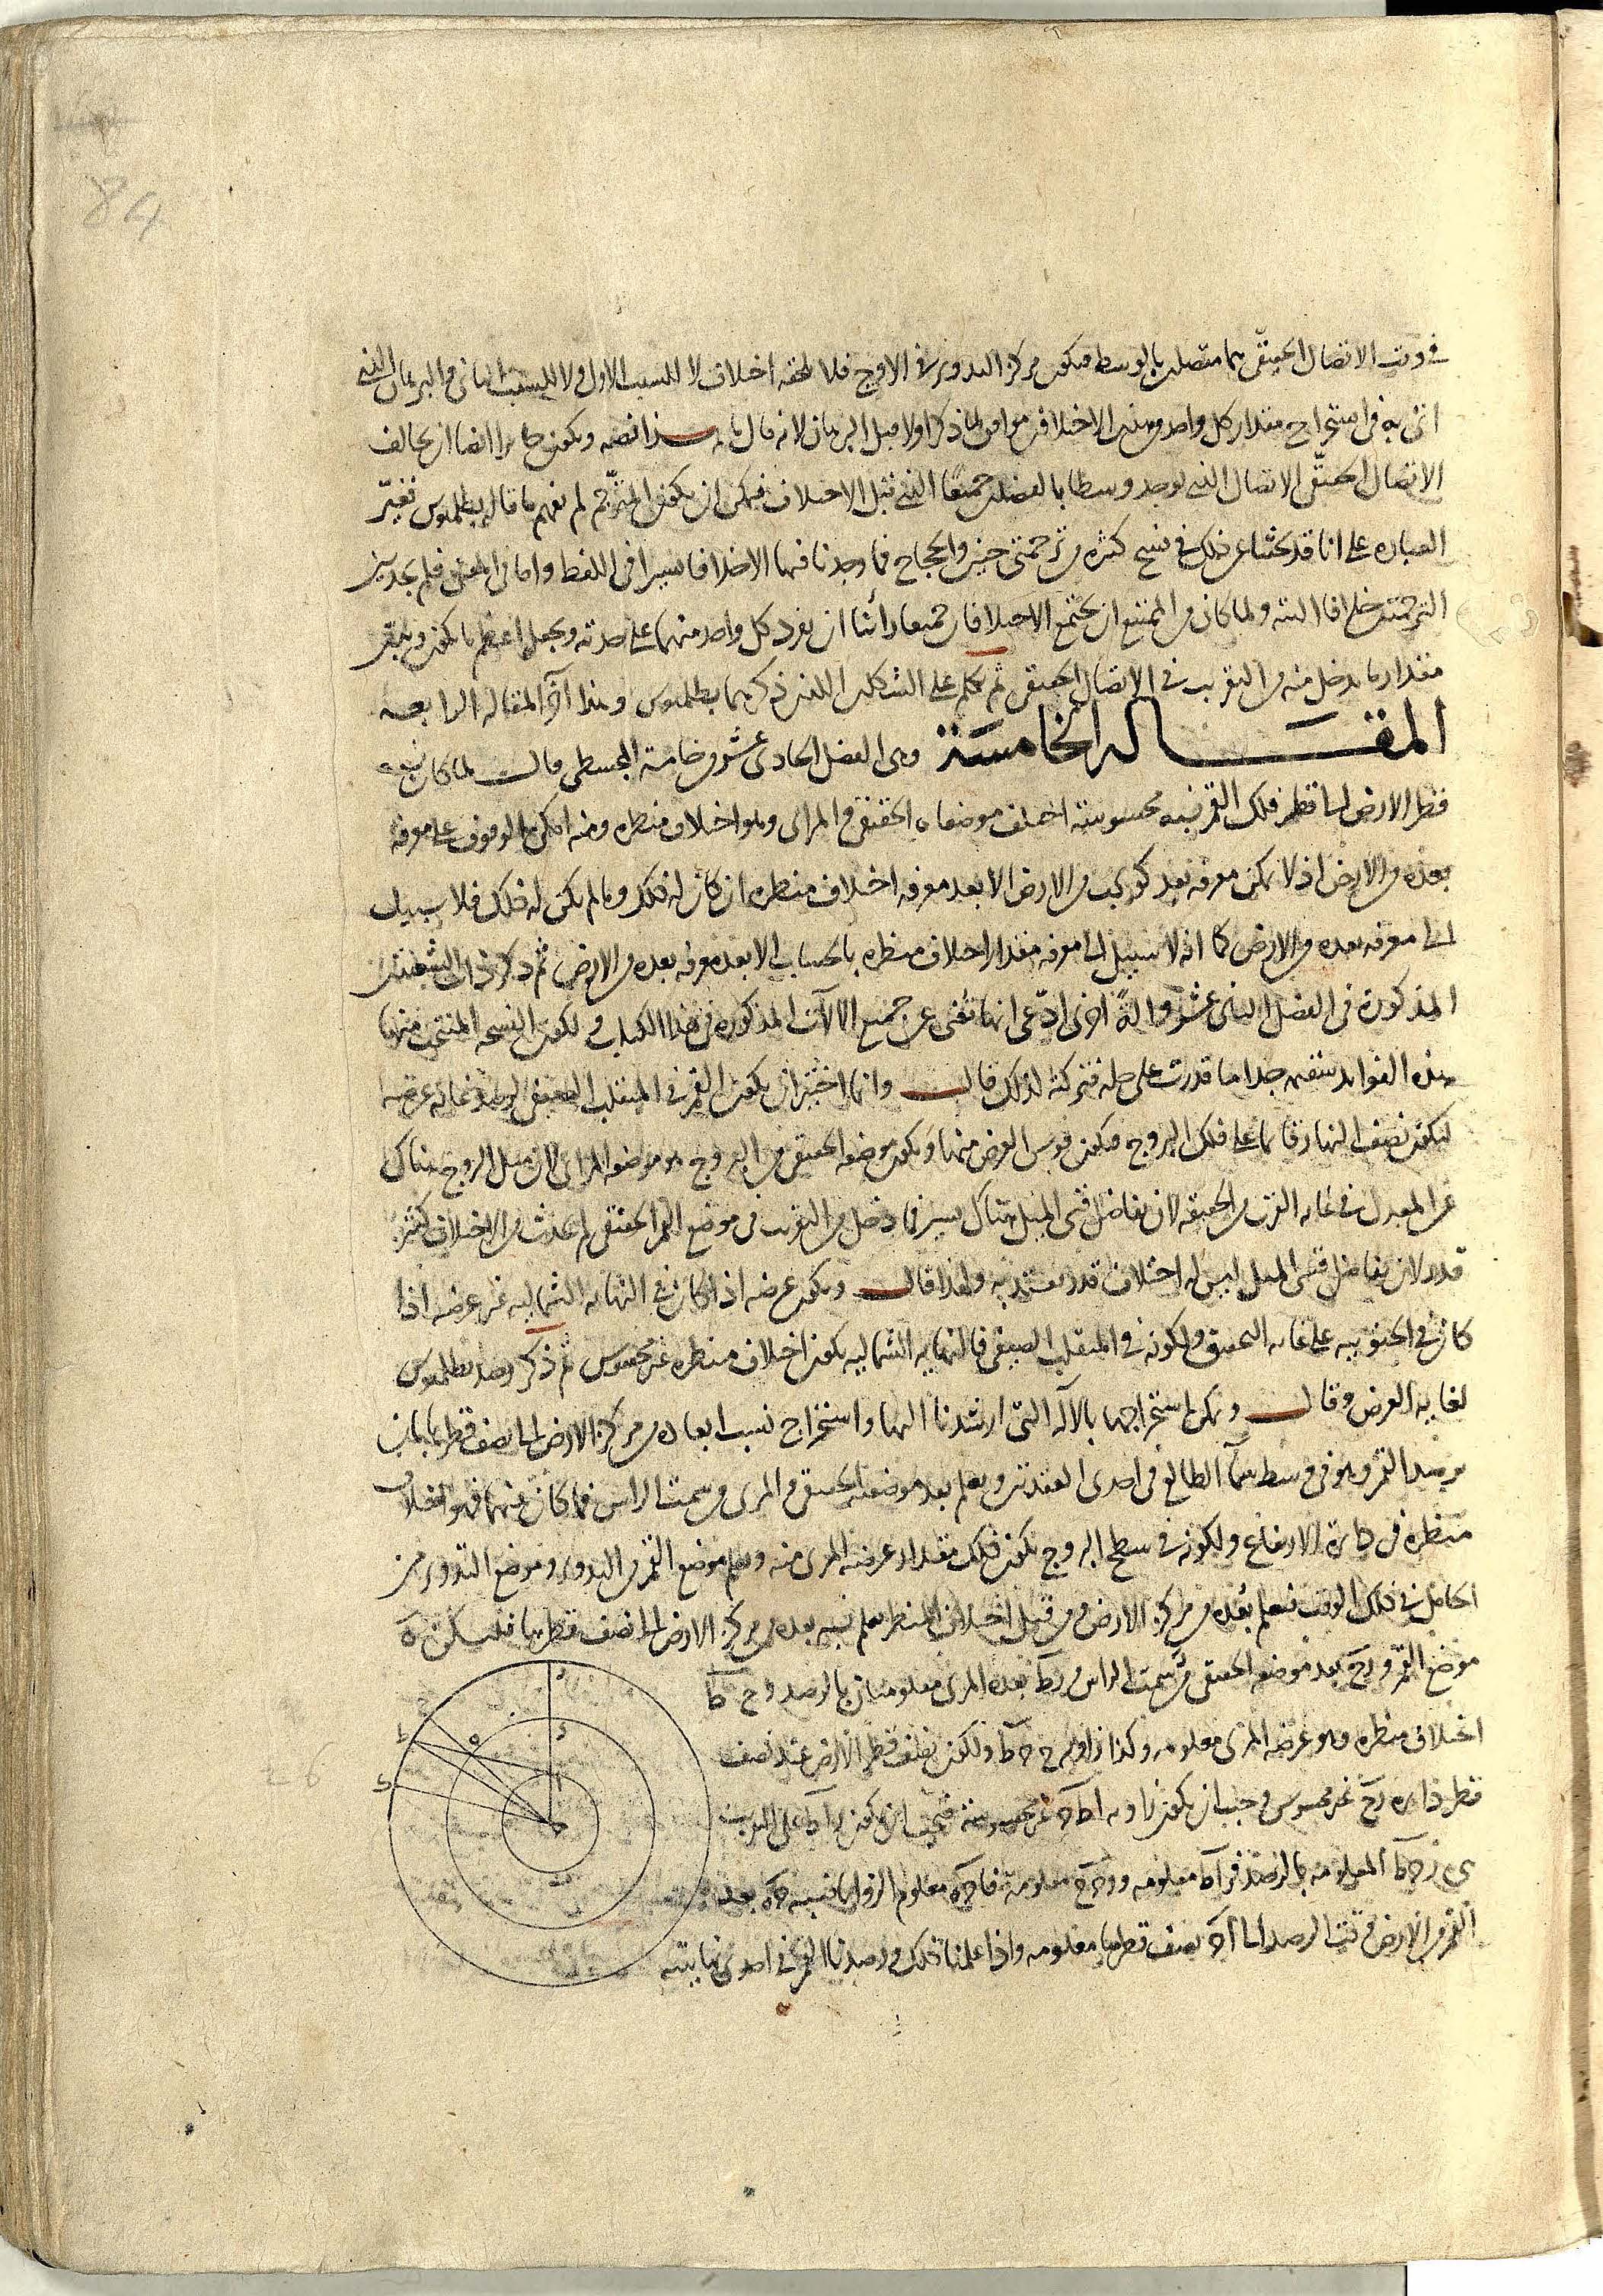 84
في وقت الاتصال الحقيقي هما متصلين بالوسط فيكون مركز التدوير في الاوج فلا يلحقه اختلاف لا للسبب الاول ولا للسبب الثاني والبرهان الذي
اتى به في استخراج مقدار كل واحد من هذين الاختلافين موافق لما ذكر اولا قبل البرهان لانه قال ما هذا نصه ويكون جايزا ايضا ان يخالف
الاتصال الحقيقي الاتصال الذي يوجد وسطا بالفضلين جميعا الذي قبل الاختلاف فيمكن ان يكون المترجم لم يفهم ما قاله بطلميوس فغير
العباره على انا قد بحثنا عن ذلك في نسخ كثيره من ترجمتي حنين والحجاج فما وجدنا فيها الا خلافا يسيرا في اللفظ واما في المعنى فلم نجد بين
الترجمتين خلافا البته ولما كان من الممتنع ان يجتمع الاختلافان جميعا راينا ان نفرد كل واحد منهما على حدته ونجعله اعظم ما يكون ونبين
مقدار ما يدخل منه من التقريب في الاتصال الحقيقي ثم تكلم على الشكلين اللذين ذكرهما بطلميوس وهذا آخر المقاله الرابعه
المقاله الخامسة وهي الفصل الحادي عشر من خامسة المجسطي قال لما كان نسبه
قطر الارض الى قطر فلك القمر نسبه محسوسة اختلف موضعاه الحقيقي والمرائي وهو اختلاف منظره ومنه امكن الوقوف على معرفة
بعده من الارض اذ لا يمكن معرفه بعد كوكب من الارض الا بعد معرفه اختلاف منظره ان كان له ذلك وما لم يكن له ذلك فلا سبيل
الى معرفه بعده من الارض كما انه لا سبيل الى معرفه مقدار اختلاف منظره بالحساب الا بعد معرفه بعده من الارض ثم ذكر ذات الشعبتين
المذكورة في الفصل الثاني عشر وآلة اخرى ادّعى انها تغني عن جميع الآلات المذكوره في هذا الكتاب ولكون النسخه المنتسخ منها
هذه الفوايد سقيمه جدا ما قدرت على حله فتركته لذلك قال وانما اختير ان يكون القمر في المنقلب الصيفي وغايه عرضه
ليكون نصف النهار قايما على فلك البروج فيكون قوس العرض منها ويكون موضعه الحقيقي من البروج هو موضعه المرائي لان ميل البروج هناك
عن المعدل في غايه القرب من الحقيقه لان تفاضل قسي الميل هناك يسير فما دخل من التقريب في موضع القمر الحقيقي لم يحدث من الاختلاف كثير
قدر لان تفاضل قسي الميل ليس له اختلاف قدر يعتد به ولهذا قال ويكون عرضه اذا كان في النهايه الشماليه غير عرضه اذا
كان في الجنوبيه على غايه التحقيق ولكونه في المنقلب الصيفي والنهايه الشماليه يكون اختلاف منظره غير محسوس ثم ذكر رصد بطلميوس
لغايه العرض وقال ويمكن استخراجها بالآله التي ارشدنا اليها واستخراج نسب ابعاده من مركز الارض الى نصف قطرها بان
يرصد القمر وهو في وسط سما الطالع في احدى العقدتين ويعلم بعد موضعيه الحقيقي والمرئي من سمت الراس فما كان بينهما فهو اختلاف
منظره في دائرة الارتفاع ولكونه في سطح البروج يكون ذلك مقدار عرضه المرئي منه ويعلم موضع القمر من التدوير وموضع التدوير من
الحامل في ذلك الوقت فيعلم بعده من مركز الارض ومن قبل اختلاف المنظر يعلم نسبه بعده من مركز الارض الى نصف قطرها فليكن ه
موضع القمر و رح بعد موضعه الحقيقي من سمت الراس و رط بعده المرئي معلومتان بالرصد و ح ط
اختلاف منظره وهو عرضه المرئي معلومه وكذا زاوية ح ه ط ولكون نصف قطر الارض عند نصف
قطر دائره رح غير محسوس وجب ان يكون زاويه اط ه غير محسوسة فيجب ان يكون را ط على التقريب
هي ر ط المعلومه بالرصد فزاويه معلومه و ر ح معلومه فا ح ه معلوم الزوايا فنسبه ه بعد
القمر من الارض وقت الرصد الى ا نصف قطرها معلومه واذا علمنا ذلك ورصدنا القمر في احدى نهايتيه